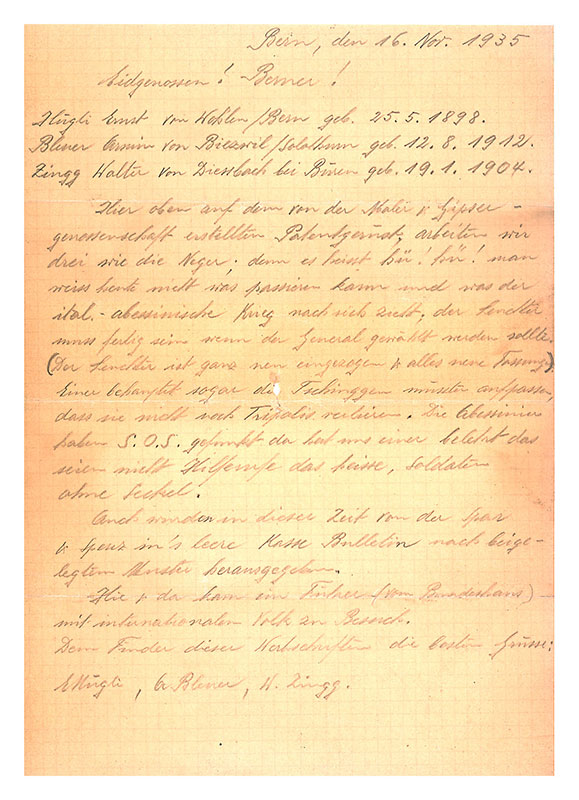 Bern, den 16. Nov. 1935
Eidgenossen! Berner!
Hügli Ernst von Wohlen/Bern geb. 25.5.1898.
Bleuer Armin von Biezwil/Solothurn geb. 12.8.1912.
Zingg Walter von Diessbach bei Büren geb. 19.1.1904.
Hier oben auf dem von der Maler & Gipser-
genossenschaft erstellten Patentgerüst, arbeiten wir
drei wie die Neger, denn es heisst hü! hü! man
weiss heute nicht was passieren kann und was der
ital.-abessinische Krieg nach sich zieht, der Leuchter
muss fertig sein wenn der General gewählt werden sollte.
(Der Leuchter ist ganz neu eingezogen & alles neue Fassung)
Einer behauptet sogar die Tschinggen müssten aufpassen,
dass sie nicht noch Tripolis verlieren. Die Abessinier
haben S.O.S. gefunkt da hat uns einer belehrt das
seien nicht Hilferufe das heisse, Soldaten
ohne Seckel.
Auch wurden in dieser Zeit von der Spar
& in's leere Kasse Bulletin nach beige-
legtem Muster herausgegeben.
Hie & da kam ein Führer (vom Bundeshaus)
mit internationalem Volk zu Besuch.
Dem Finder dieser die besten Grüsse:
E Hügli, A. Bleuer, W. Zingg.